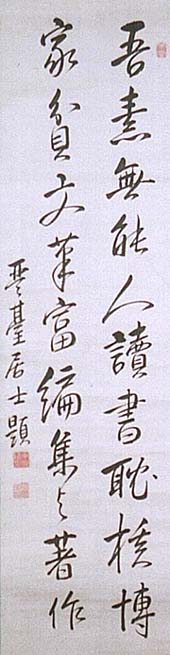 吾素無能人讀書耽樸博
家貧文筆富編集与著作
琴臺居士題